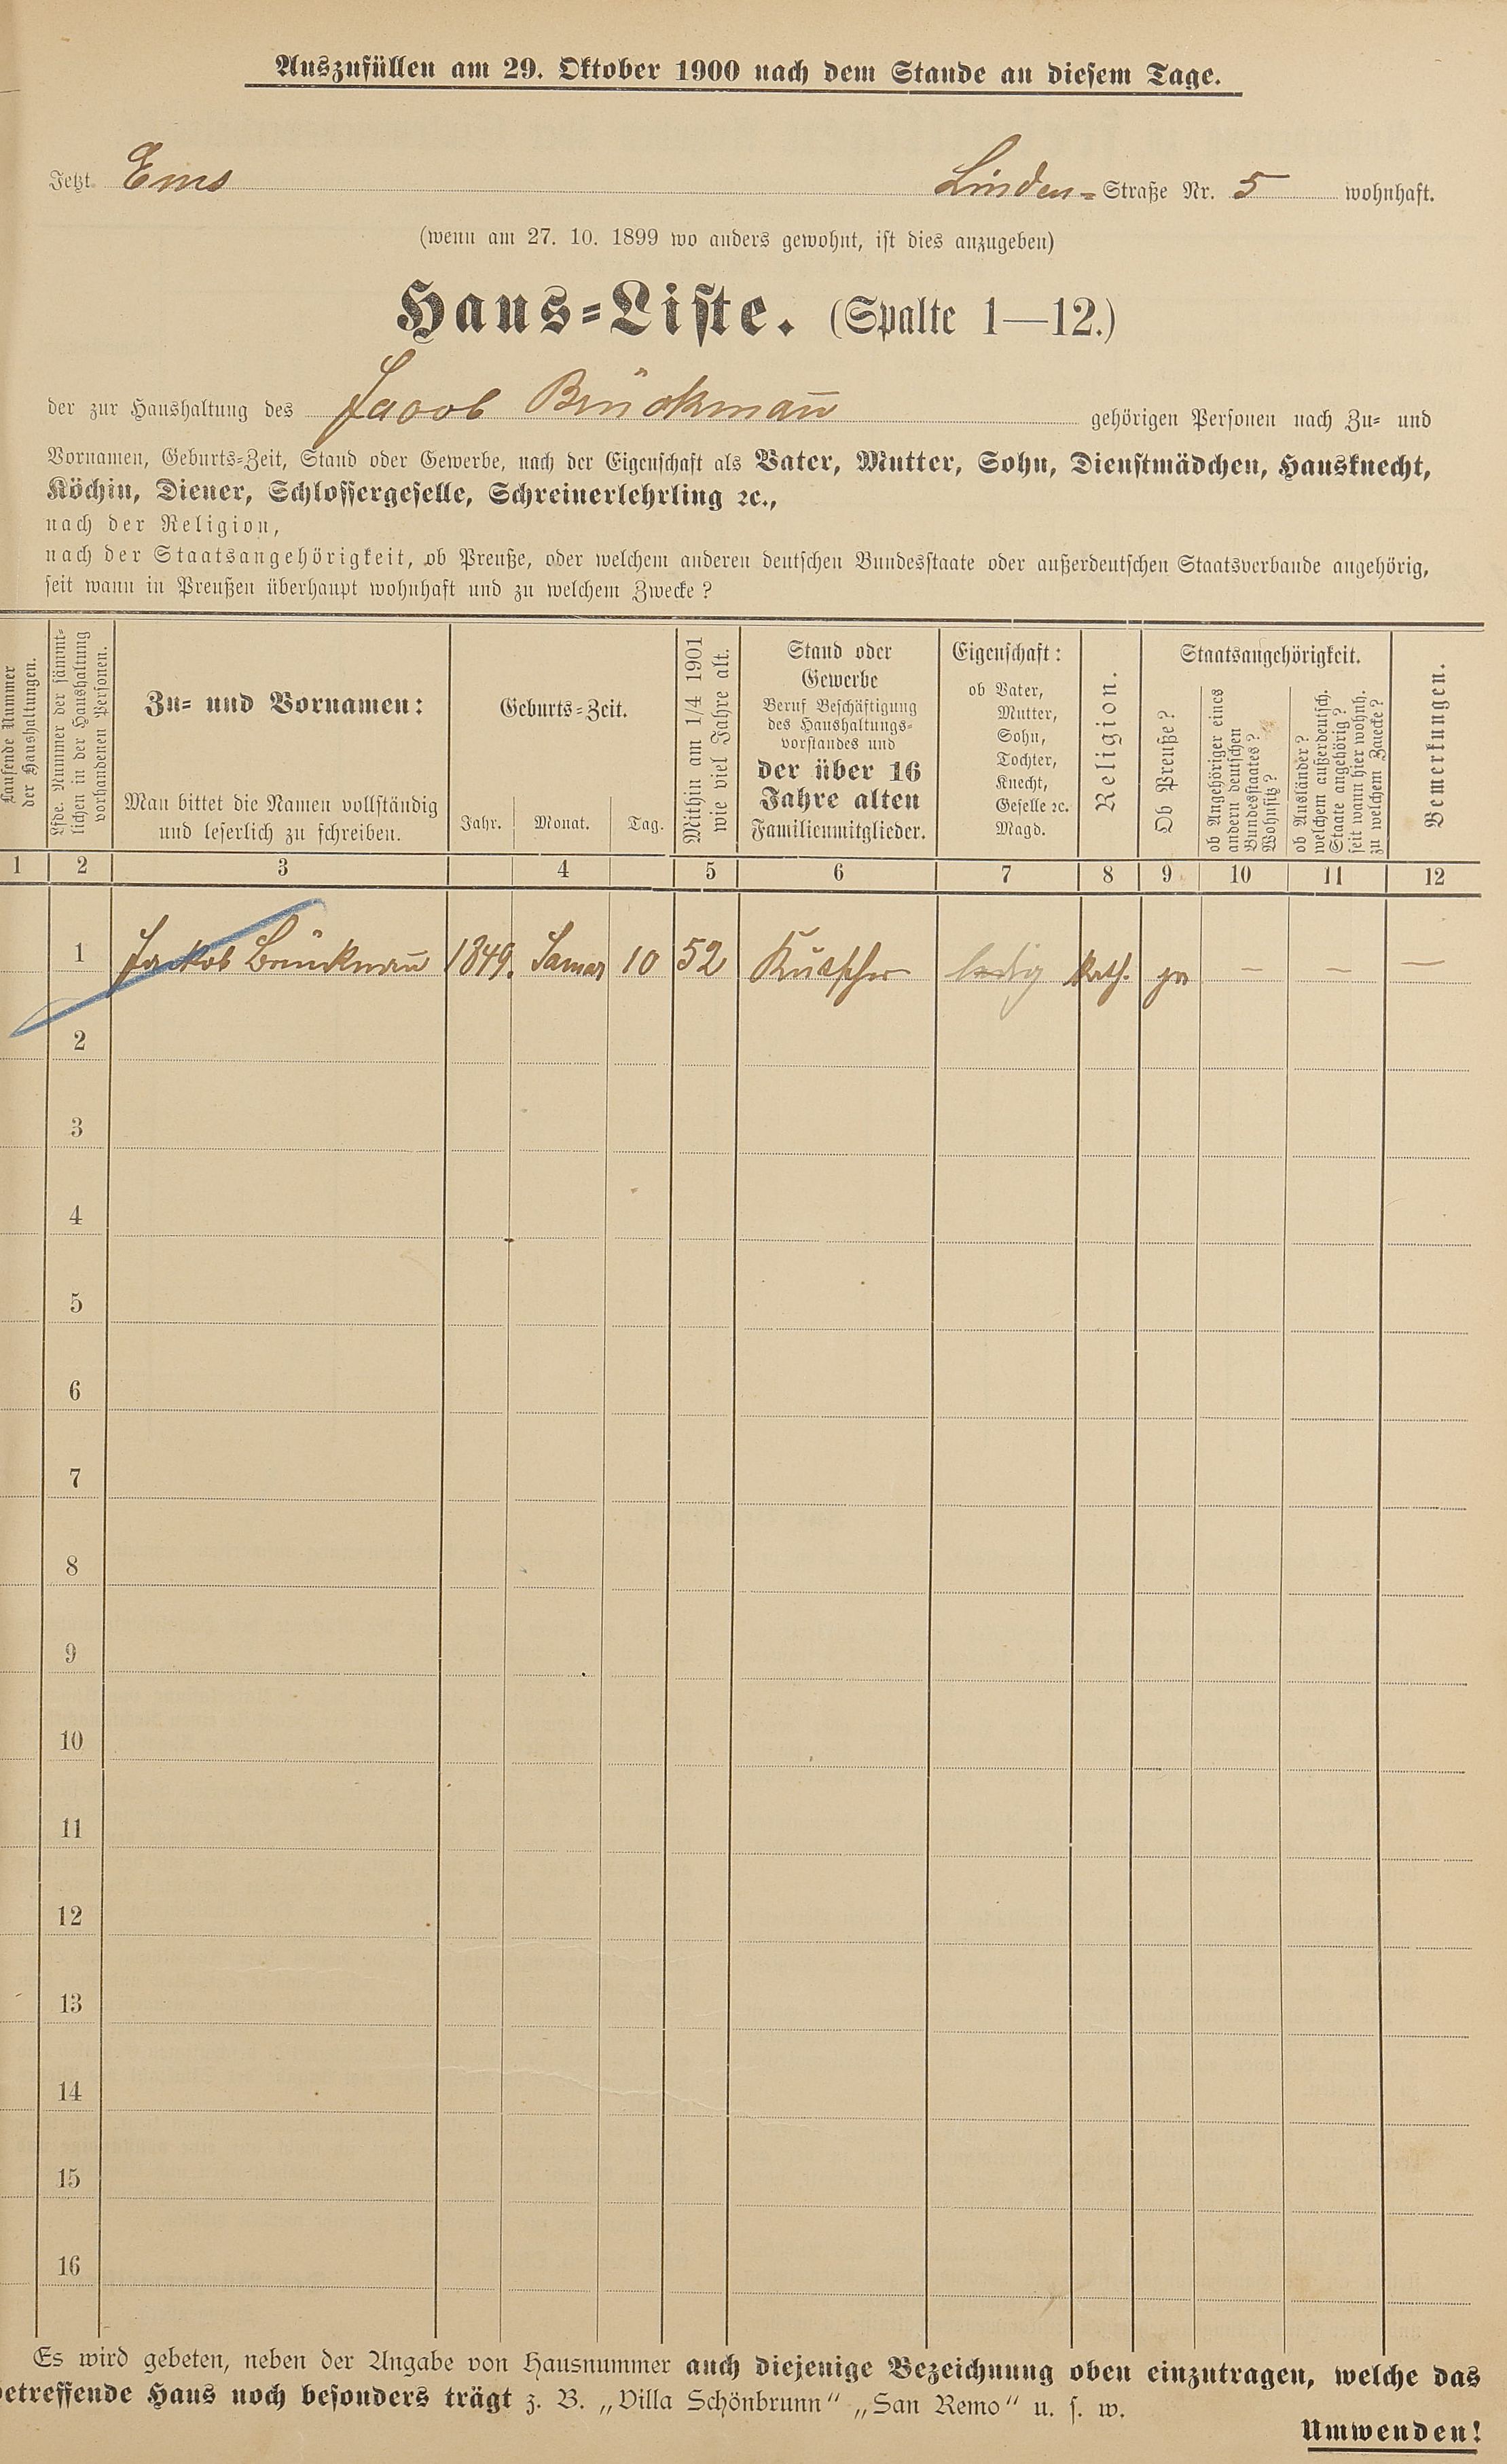 Auszufüllen am 29. Oktober 1900 nach dem Stande an diesem Tage.
Jetzt Ems Linden-Straße Nr. 5 wohnhaft.
(wenn am 27. 10. 1899 wo anders gewohnt, ist dies anzugeben)
Haus-Liste. (Spalte 1—12.)
der zur Haushaltung des Jacob Brückmañ gehörigen Personen nach Zu- und
Vornamen, Geburts-Zeit, Stand oder Gewerbe, nach der Eigenschaft als Vater, Mutter, Sohn, Dienstmädchen, Hausknecht,
Köchin, Diener, Schlossergeselle, Schreinerlehrling ꝛc.,
nach der Religion,
nach der Staatsangehörigkeit, ob Preuße, oder welchem anderen deutschen Bundesstaate oder außerdeutschen Staatsverbande angehörig,
seit wann in Preußen überhaupt wohnhaft und zu welchem Zwecke?
Laufende Nummer
der Haushaltungen.
Lfde. Nummer der sämmt-
lichen in der Haushaltung
vorhandenen Personen.
Zu- und Vornamen:
Man bittet die Namen vollständig
und leserlich zu schreiben.
Geburts-Zeit.
Jahr. Monat. Tag.
Mithin am 1/4 1901
wie viel Jahre alt.
Stand oder
Gewerbe
Beruf Beschäftigung
des Haushaltungs-
vorstandes und
der über 16
Jahre alten
Familienmitglieder.
Eigenschaft:
ob Vater,
Mutter,
Sohn,
Tochter,
Knecht,
Geselle ꝛc.
Magd.
Religion.
Staatsangehörigkeit.
Ob Preuße?
ob Angehöriger eines
andern deutschen
Bundesstaates?
Wohnsitz?
ob Ausländer?
welchem außerdeutsch.
Staate angehörig?
seit wann hier wohnh.
zu welchem Zwecke?
Bemerkungen.
1 2 3 4 5 6 7 8 9 10 11 12
1 Jackob Brückmañ 1849. 10 52 Kutscher ledig kath. ja — — —
2
3
4
5
6
7
8
9
10
11
12
13
14
15
16
Es wird gebeten, neben der Angabe von Hausnummer auch diejenige Bezeichnung oben einzutragen, welche das
betreffende Haus noch besonders trägt z. B. „Villa Schönbrunn“ „San Remo“ u. s. w.
Umwenden!